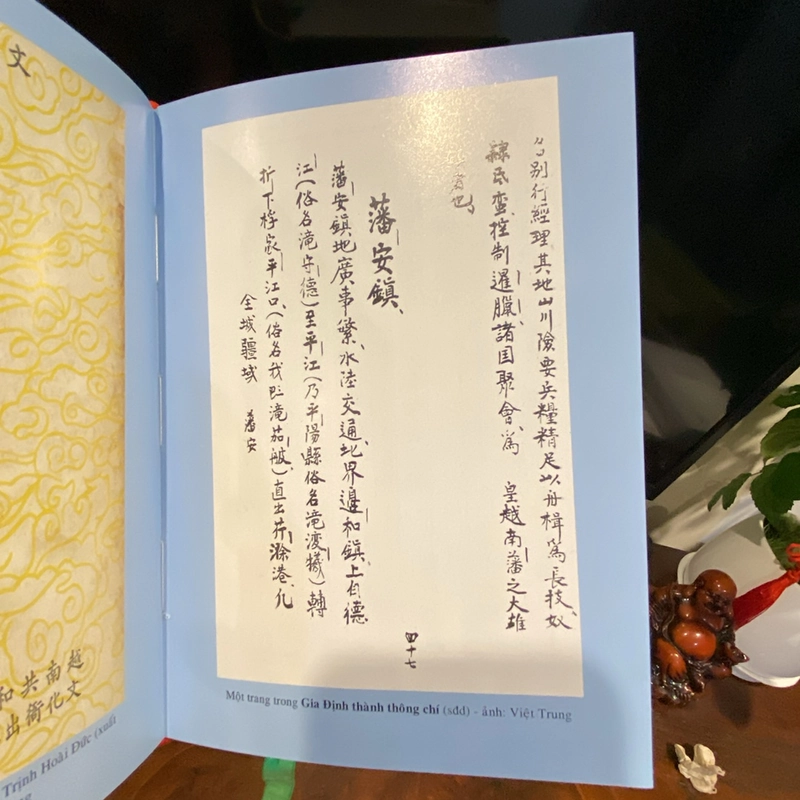 文
越南共和
文化衛出
Trịnh Hoài Đức (xuất
別行經理其地山川險要兵糧精足以舟楫為長技、奴
隸民蠻、控制暹臘、諸国聚會、為 皇越南藩之大雄
者也、
藩安鎮、
藩安鎮地廣事繁、水陸交通、北界邊和鎮、上自德
江(俗名滝守德)至平江(乃平陽縣俗名滝渡櫗)轉
折下㭲家平江口、(俗名我𠀧滝茄䑩)直出芹滁港、凡
全城疆域 藩安
四十七
Một trang trong Gia Định thành thông chí (sđd) - ảnh: Việt Trung